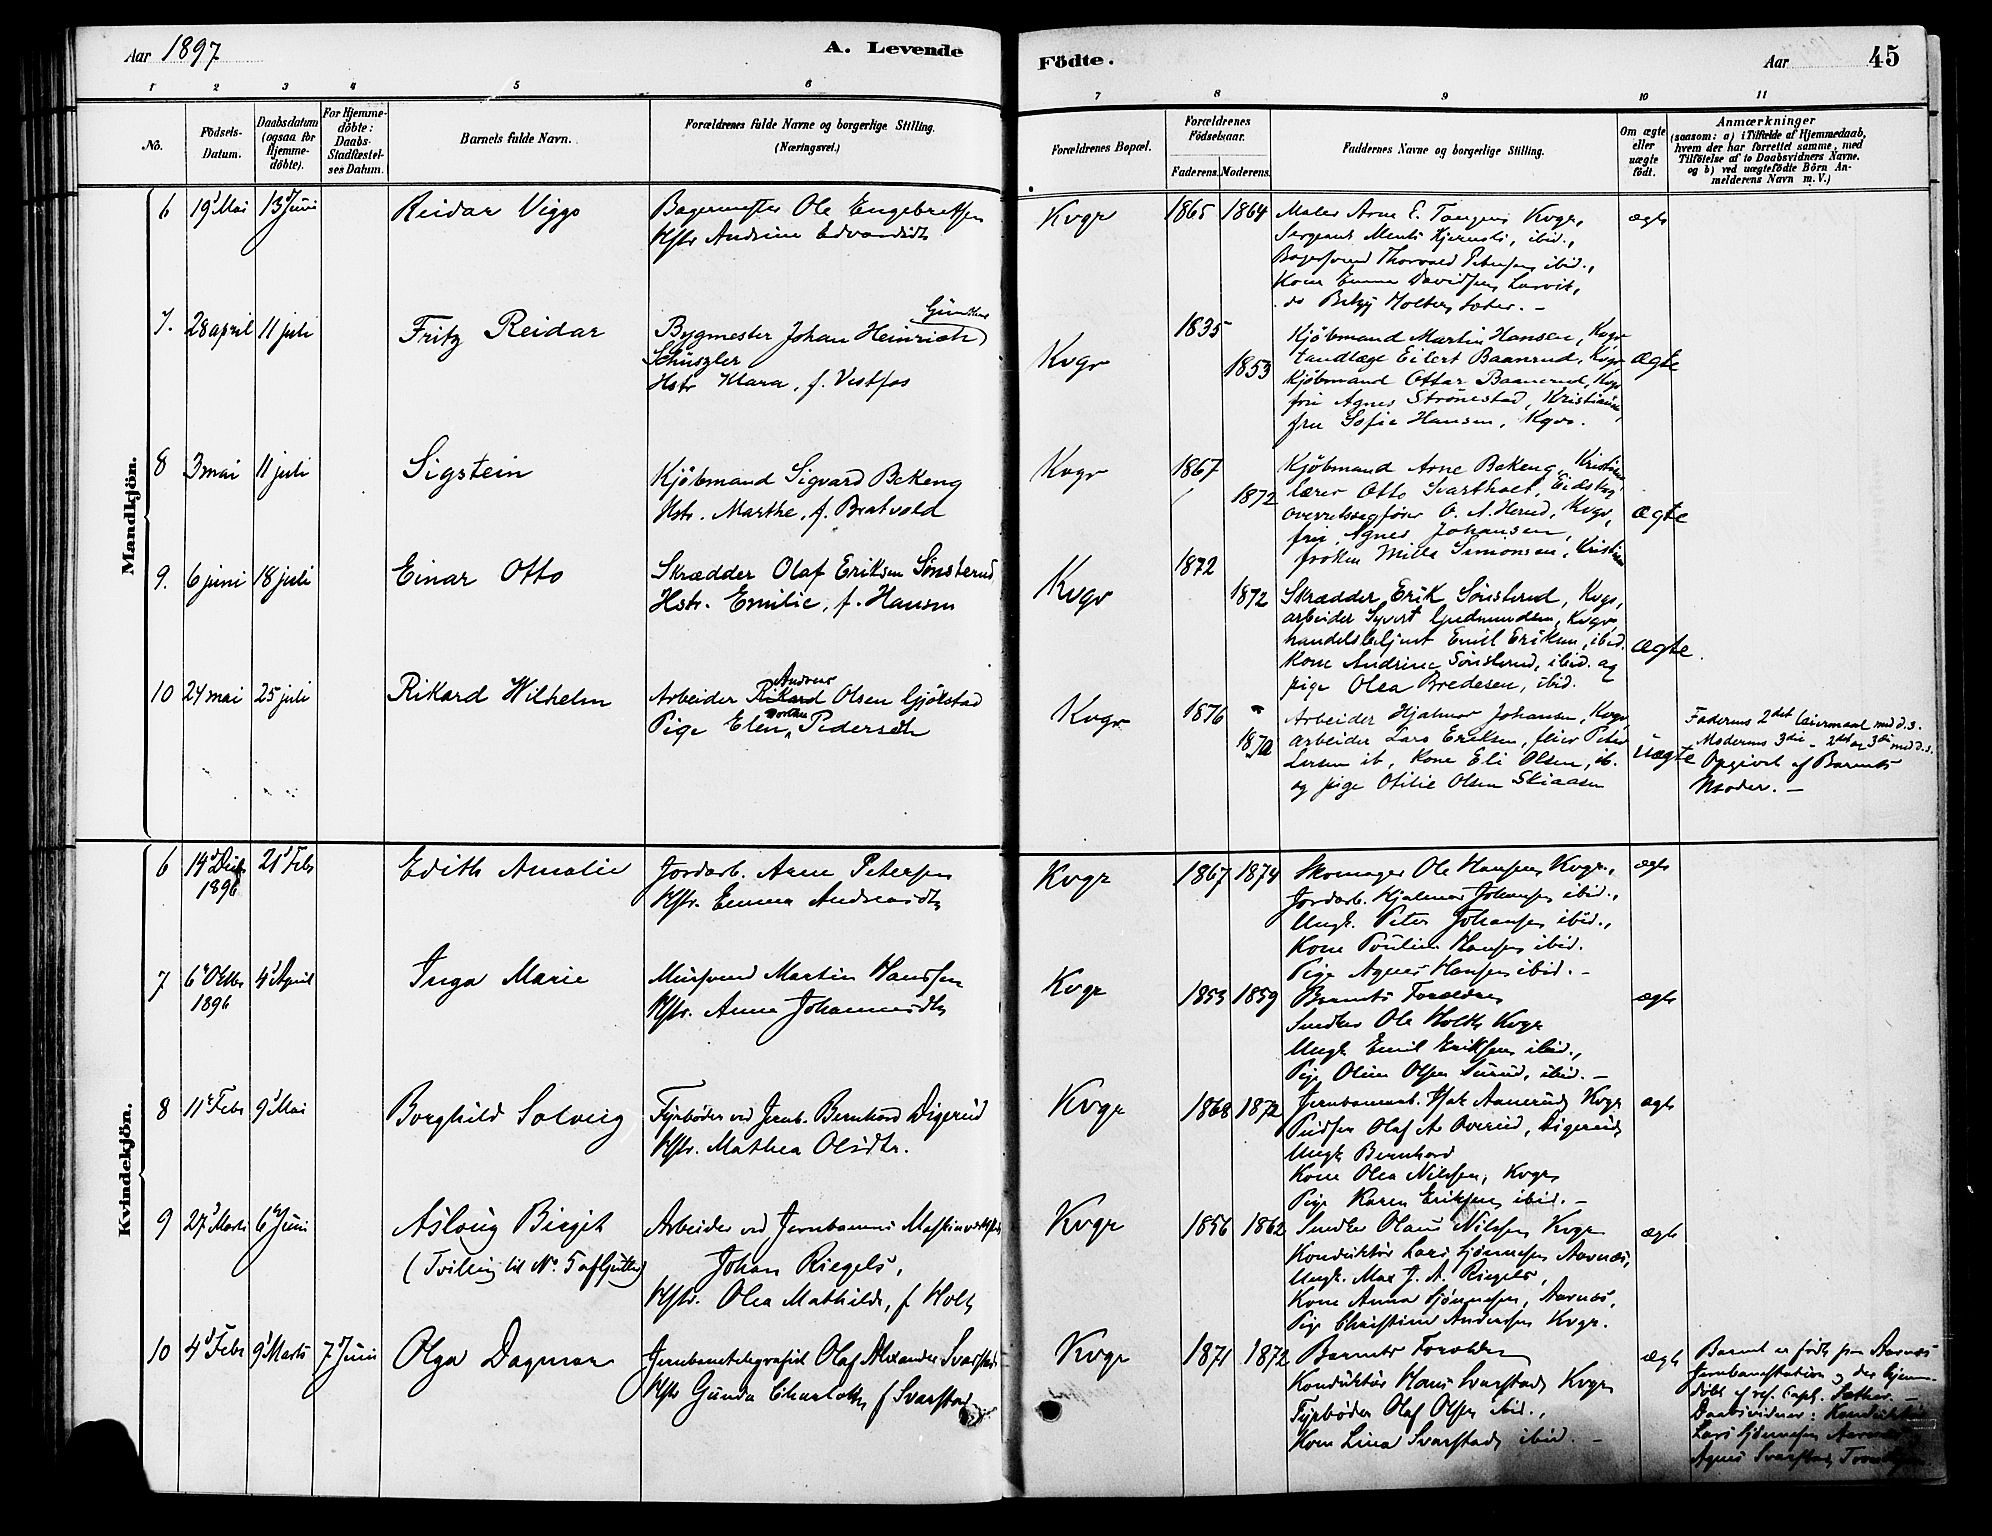 Aar 1897
A. Levende
Födte.
Aar
45
1 2 3 4 5 6 7 8 9 10 11
No.
Födsels-
Datum.
Daabsdatum
(ogsaa for
Hjemme-
döbte).
For Hjemme-
döbte:
Daabs-
Stadfæstel-
ses Datum.
Barnets fulde Navn.
Forældrenes fulde Navne og borgerlige Stilling.
(Næringsvei.)
Forældrenes Bopæl.
Forældrenes
Födselsaar.
Faderens. Moderens.
Faddernes Navne og borgerlige Stilling.
Om ægte
eller
uægte
födt.
Anmærkninger
(saasom: a) i Tilfælde af Hjemmedaab,
hvem der har forrettet samme, med
Tilföielse af to Daabsvidners Navne.
og b) ved uægtefödte Börn An-
melderens Navn m. V.)
Mandkjön.
6 19 Mai 13 Juni Reidar Viggo
Bagermester Ole Engebretsen
Hstr Andrine Edvardsdtr
Kvgr 1865 1864
Maler Arne E. Tangen Kvgr,
Sergeant Mentz Hjernsti, ibid.,
Bagersvend Thorvald Petersen ibid.,
Kone Emma Davidsen Larvik,
do Betzy Holberg
ægte
7. 28 april 11 juli Fritz Reidar
Bygmester Johan Heinrich Günther
Schüszler
Hstr Klara, f. Vestfos
Kvgr 1835 1853
Kjöbmand Martin Hansen, Kvgr
tandlæge Eilert Baanrud, Kvgr
Kjöbmand Ottar Baanrud, Kvgr
fru Agnes Strönestad, Kristiania,
fru Sofie Hansen, Kgvr.
ægte
8 3 mai 11 juli Sigstein
Kjöbmand Sigvard Bekeng
Hstr. Marthe, f. Bratvold
Kvgr 1867 1872
Kjöbmand Arne Bekeng, Kristiania
lærer Otto Svartholt, Eidskog
overretssagförer O. A. Herud, Kvgr,
fru Agnes Johansen,
fröken Milla Simonsen, Kristiania
ægte
9. 6 juni 18 juli Einar Otto
Skrædder Olaf Eriksen Sönsterud
Hstr. Emilie, f. Hansen
Kvgr 1872 1872
Skrædder Erik Sönsterud, Kvgr,
arbeider Syvert Gudmundsen, Kvgr,
handelsbetjent Emil Eriksen, ibid.
Kone Andrine Sönsterud, ibid. og
pige Olea Bredesen, ibid.
ægte.
10 24 mai 25 juli Rikard Wilhelm
Arbeider Rikard Andreas Olsen Gjökstad
Pige Elen Dorthea Pedersen
Kvgr 1876 1872
Arbeider Hjalmar Johansen, Kvgr
arbeider Lars Eriksen, Peter
Larsen ib., Kone Eli Olsen, ib.
og pige Otilie Olsen Skiaasen
uægte
Faderens 2det leiermaal med d.s.
Moderens 3die - 2det og 3die med d.s.
Opgivet af Barnets
Moder. —
Kvindekjön.
6 14 Decbr 1896 21 Febr Edith Amalie
Jordarb. Arne Petersen
Hstr. Emma Andreasdtr
Kvgr 1867 1874
Skomager Ole Hansen Kvgr,
Jordarb. Hjalmar Johansen ibid.,
Ungk. Peter Johansen ibid.,
Kone Pouline Hansen ibid.
Pige Agnes Hansen ibid. —
ægte
7 6 Oktbr 1896 4 April Inga Marie
Mursvend Martin Hanssen
Hstr. Anne Johannesdtr
Kvgr 1853 1859
Barnets Forældre
Snedker Ole Holth Kvgr
Ungk Emil Eriksen ibid.,
Pige Oline Olsen ibid. —
ægte
8 11 Febr 9 Mai Borghild Solveig
Fyrböder ved Jernb. Bernhard Digerud
Hstr. Mathea Olsdtr.
Kvgr 1868 1872
Jernbanearb. Isak Aanerud Kvgr
Olaf A. Overud, Digerud
Ungk Bernhard
Kone Olea Nilssen, Kvgr
Pige Karen Eriksen ibid. —
ægte
9 27 Marts 6 Juni Aslaug Birgit
(Tvilling til No. 5 af Gutter)
Arbeider ved Jernbanens Maskinverksted
Johan Riegels,
Hstr. Olea Mathilde, f. Holt
Kvgr 1856 1862
Snedker Olaus Nilssen Kvgr
Konduktör Lars Hjönnesen Aarnæs,
Ungk. Max J. A. Riegels,
Kone Anna Hjönnesen, Aarnæs,
Pige Christine Andersen Kvgr.
ægte
10 4 Febr 9 Marts 7 Juni Olga Dagmar
Jernbanetelegrafist Olaf Alexander Svarstad
Hstr Gunda Charlotte f Svarstad
Kvgr 1871 1872
Barnets Forældre
Konduktör Hans Svarstad Kvgr
Fyrböder Olaf Olsen ibid.,
Kone Lina Svarstad ibid. —
ægte
Barnet er födt paa Aarnæs
Jernbanestation og der hjem-
döbt af res. Capl. Sæther. —
Daabsvidner: Konduktör
Lars Hjönnesen Aarnæs
Agnes Svarstad,